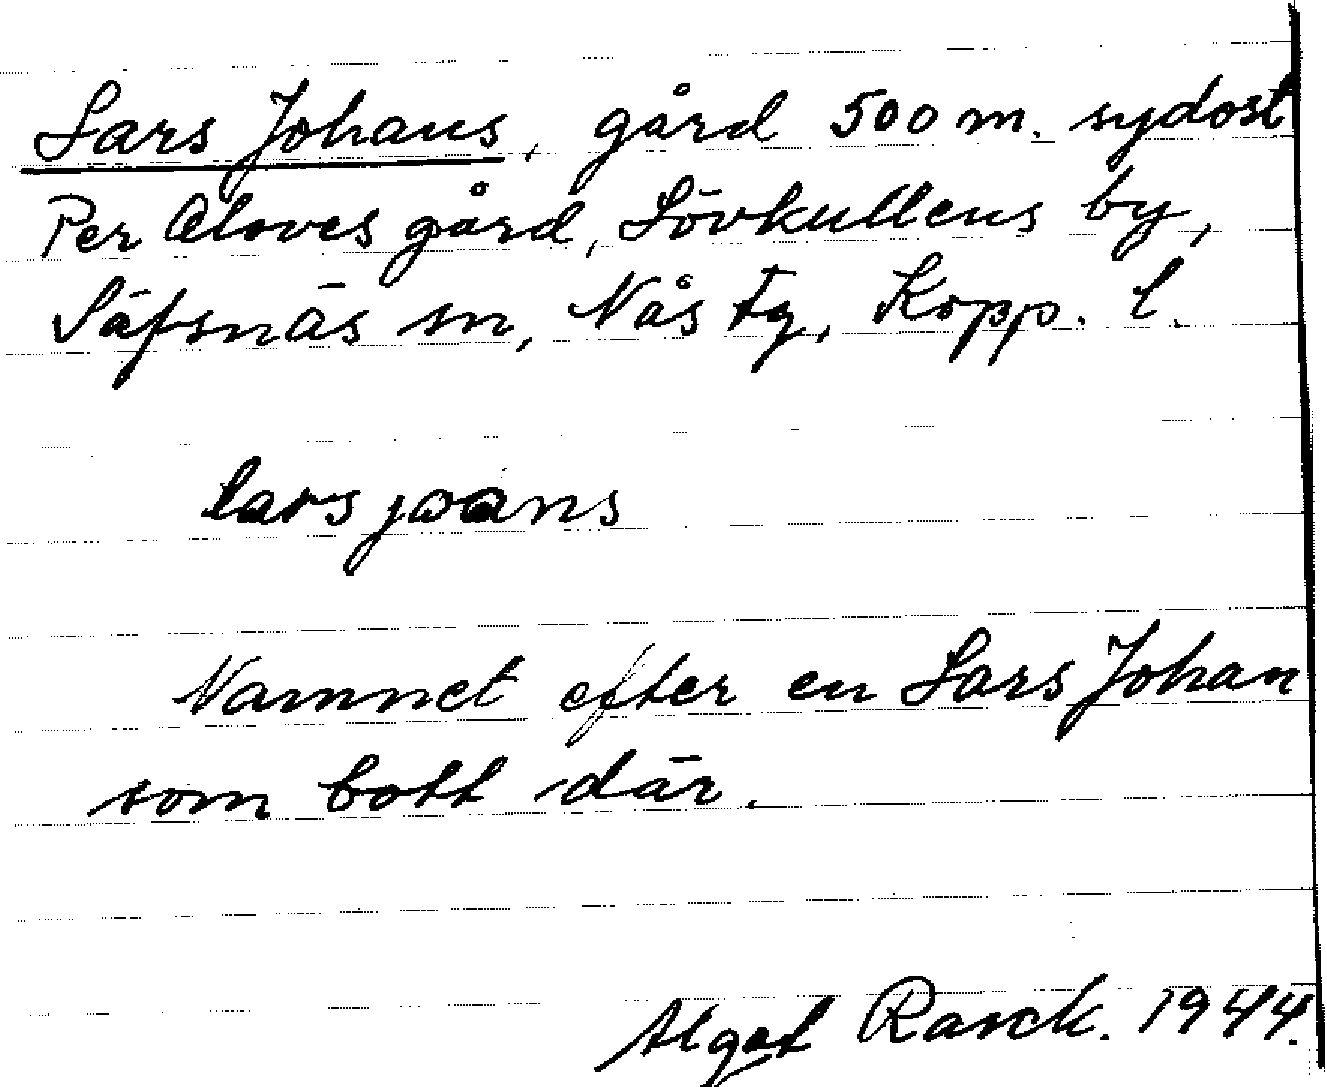 Lars Johans, gård 500 m. sydost
Per Oloves gård, Lövkullens by,
Säfsnäs sn, Nås tg, Kopp. l.
lars joans
Namnet efter en Lars Johan
som bott där.
Algot Rarck. 1944.